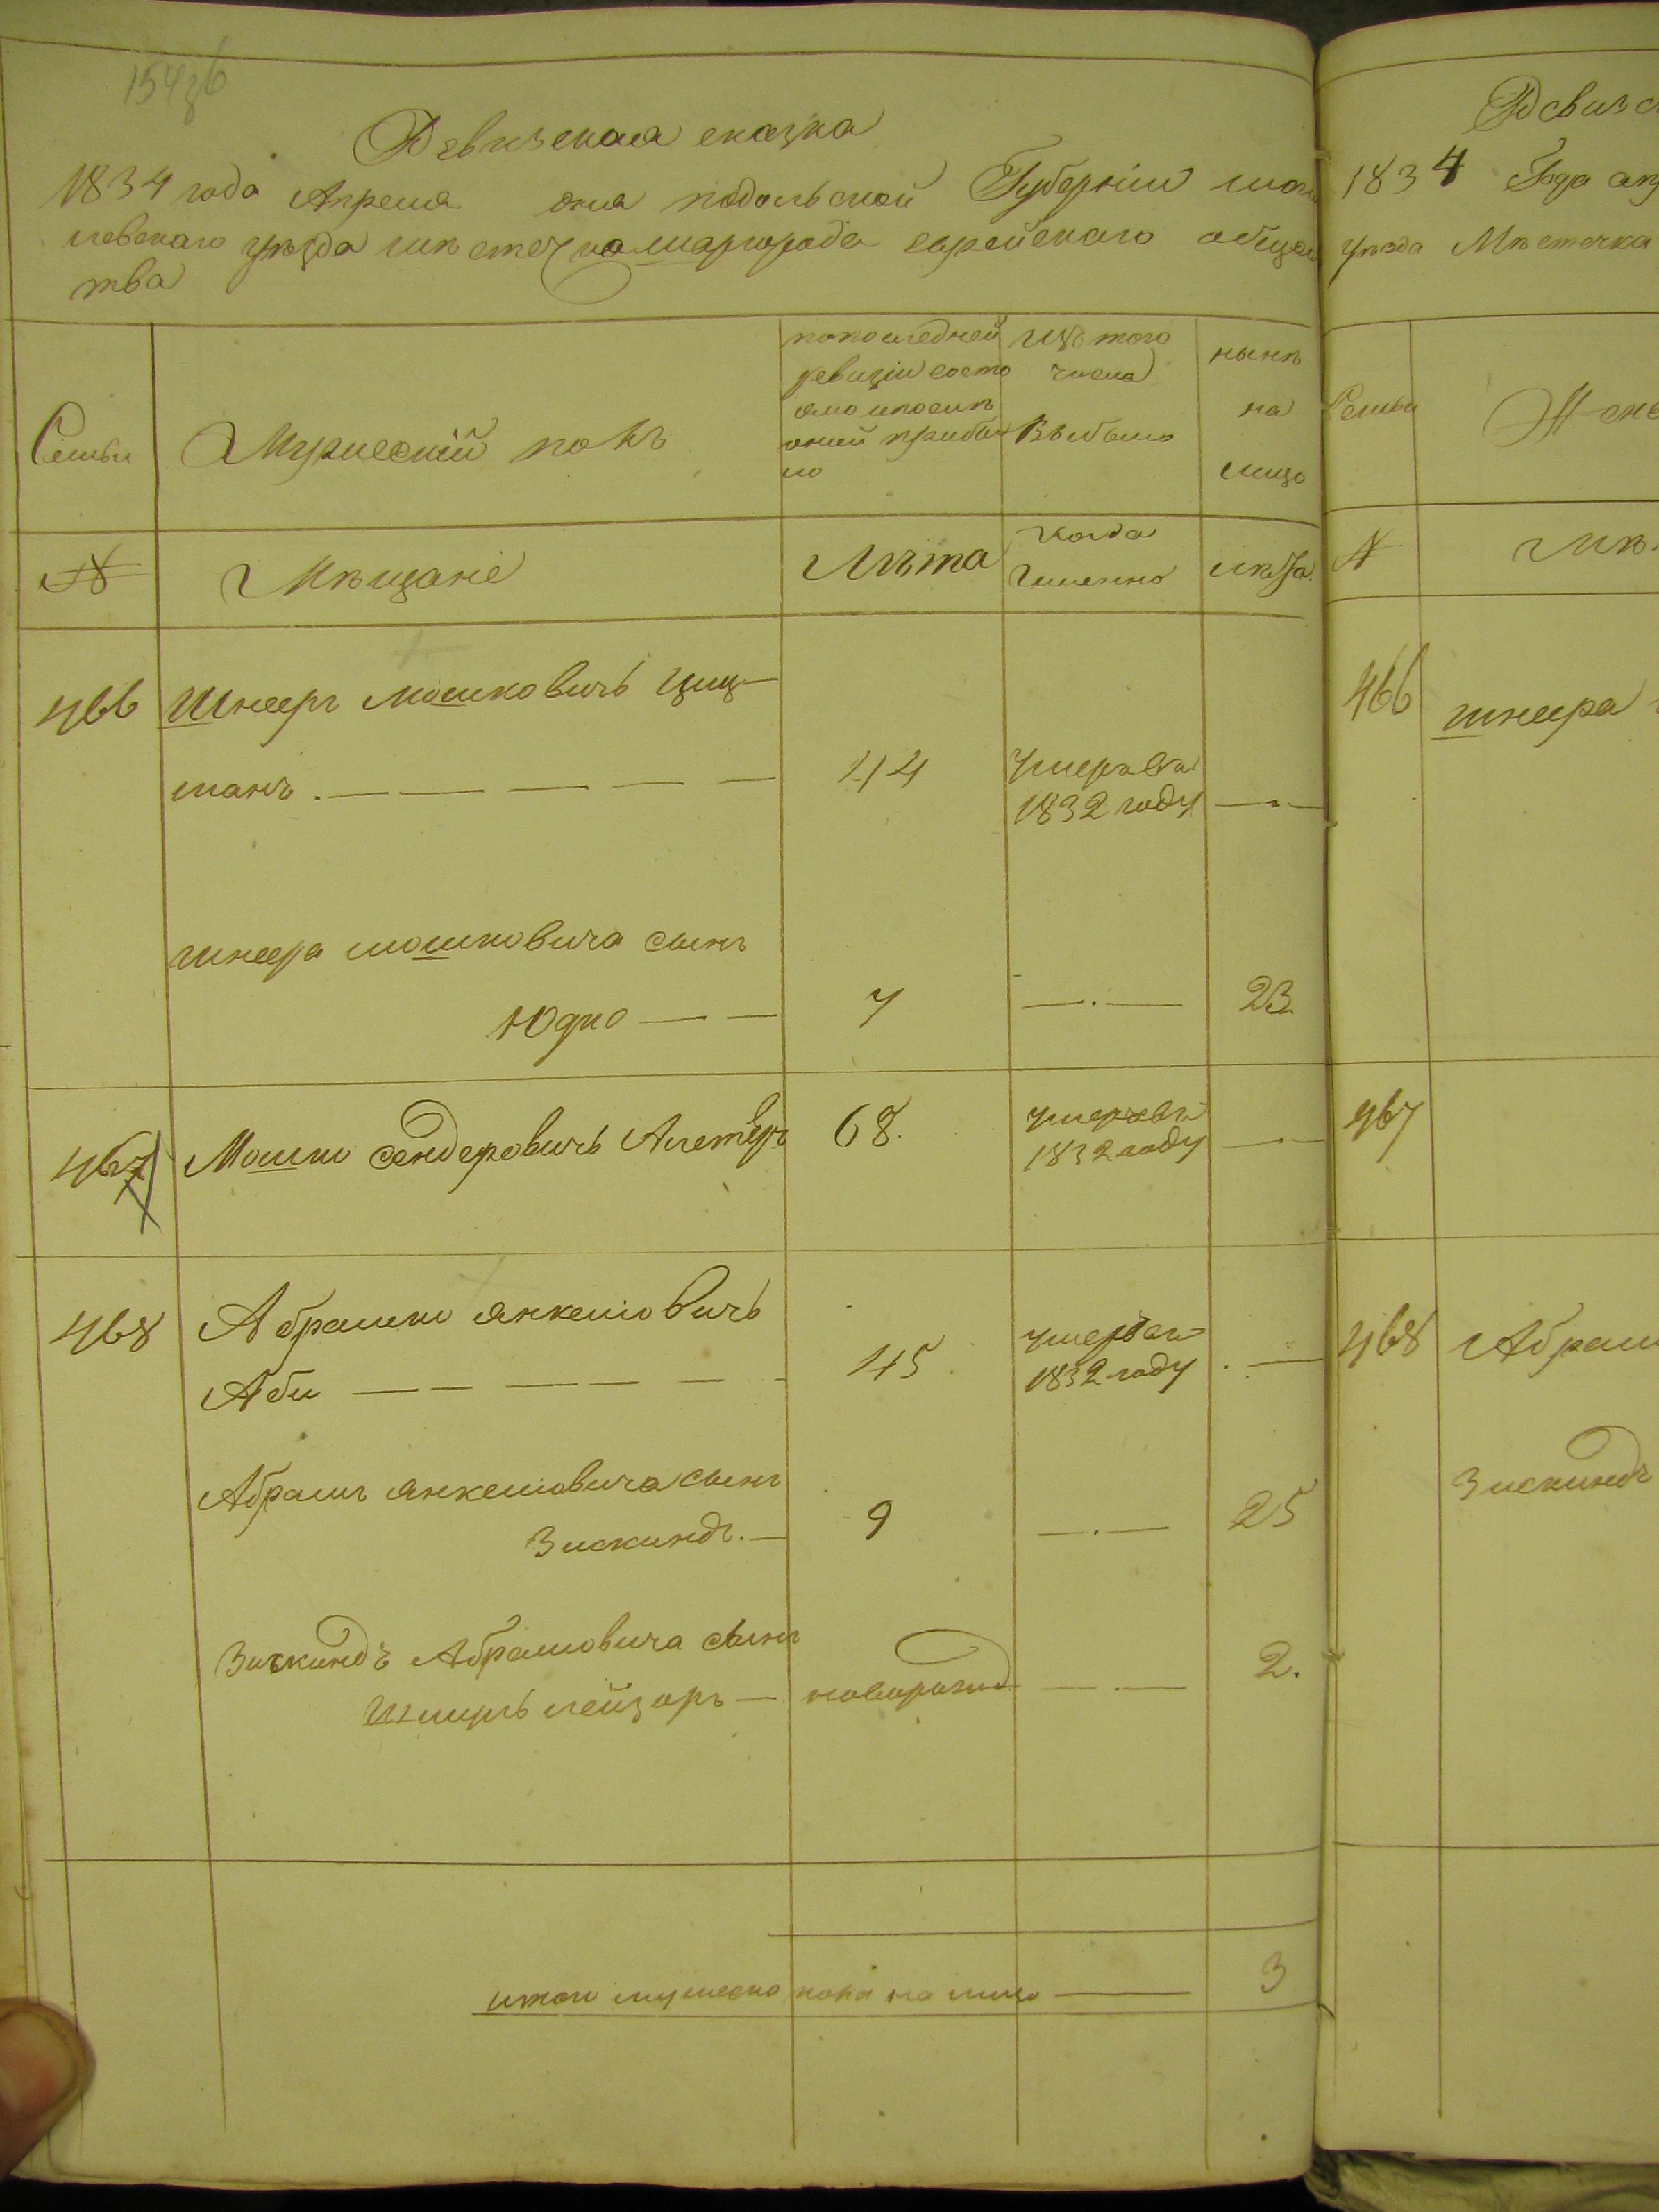 Ревизская сказка
1834 года Апреля дня подольской Губернии моги
левскаго уѣзда мѣстечка шаргорода еврейскаго общес
тва
Семьи
Мужеский полъ
попоследней
ревизии состо
яло и после
оной прибы
ло
Изъ того
числа
Выбыло
нынѣ
на
лицо
№
Мѣщане
Лѣта
Когда
Именно
лѣта
466 Шнеер Мошковичъ Циц
манъ 44 умер въ
1832 году
шнеера мошковича сынъ
Юдко 7 23
467 Мошко сендеровичъ Алетвер 68. умеръ въ
1832 году
468 Абрамко янкелювичъ
Аби 45 умер въ
1832 году
Абрам янкеловича сынъ
Зискиндъ. 9 25
Зискиндъ Абрамовича сынъ
Шмиль лейзоръ новорожд 2.
итого мужеска пола на лицо 3
1834 Года апр
уѣзда Мѣстечка
Семьи
№
466 шнеера
467
468 Абрам
Зискиндъ